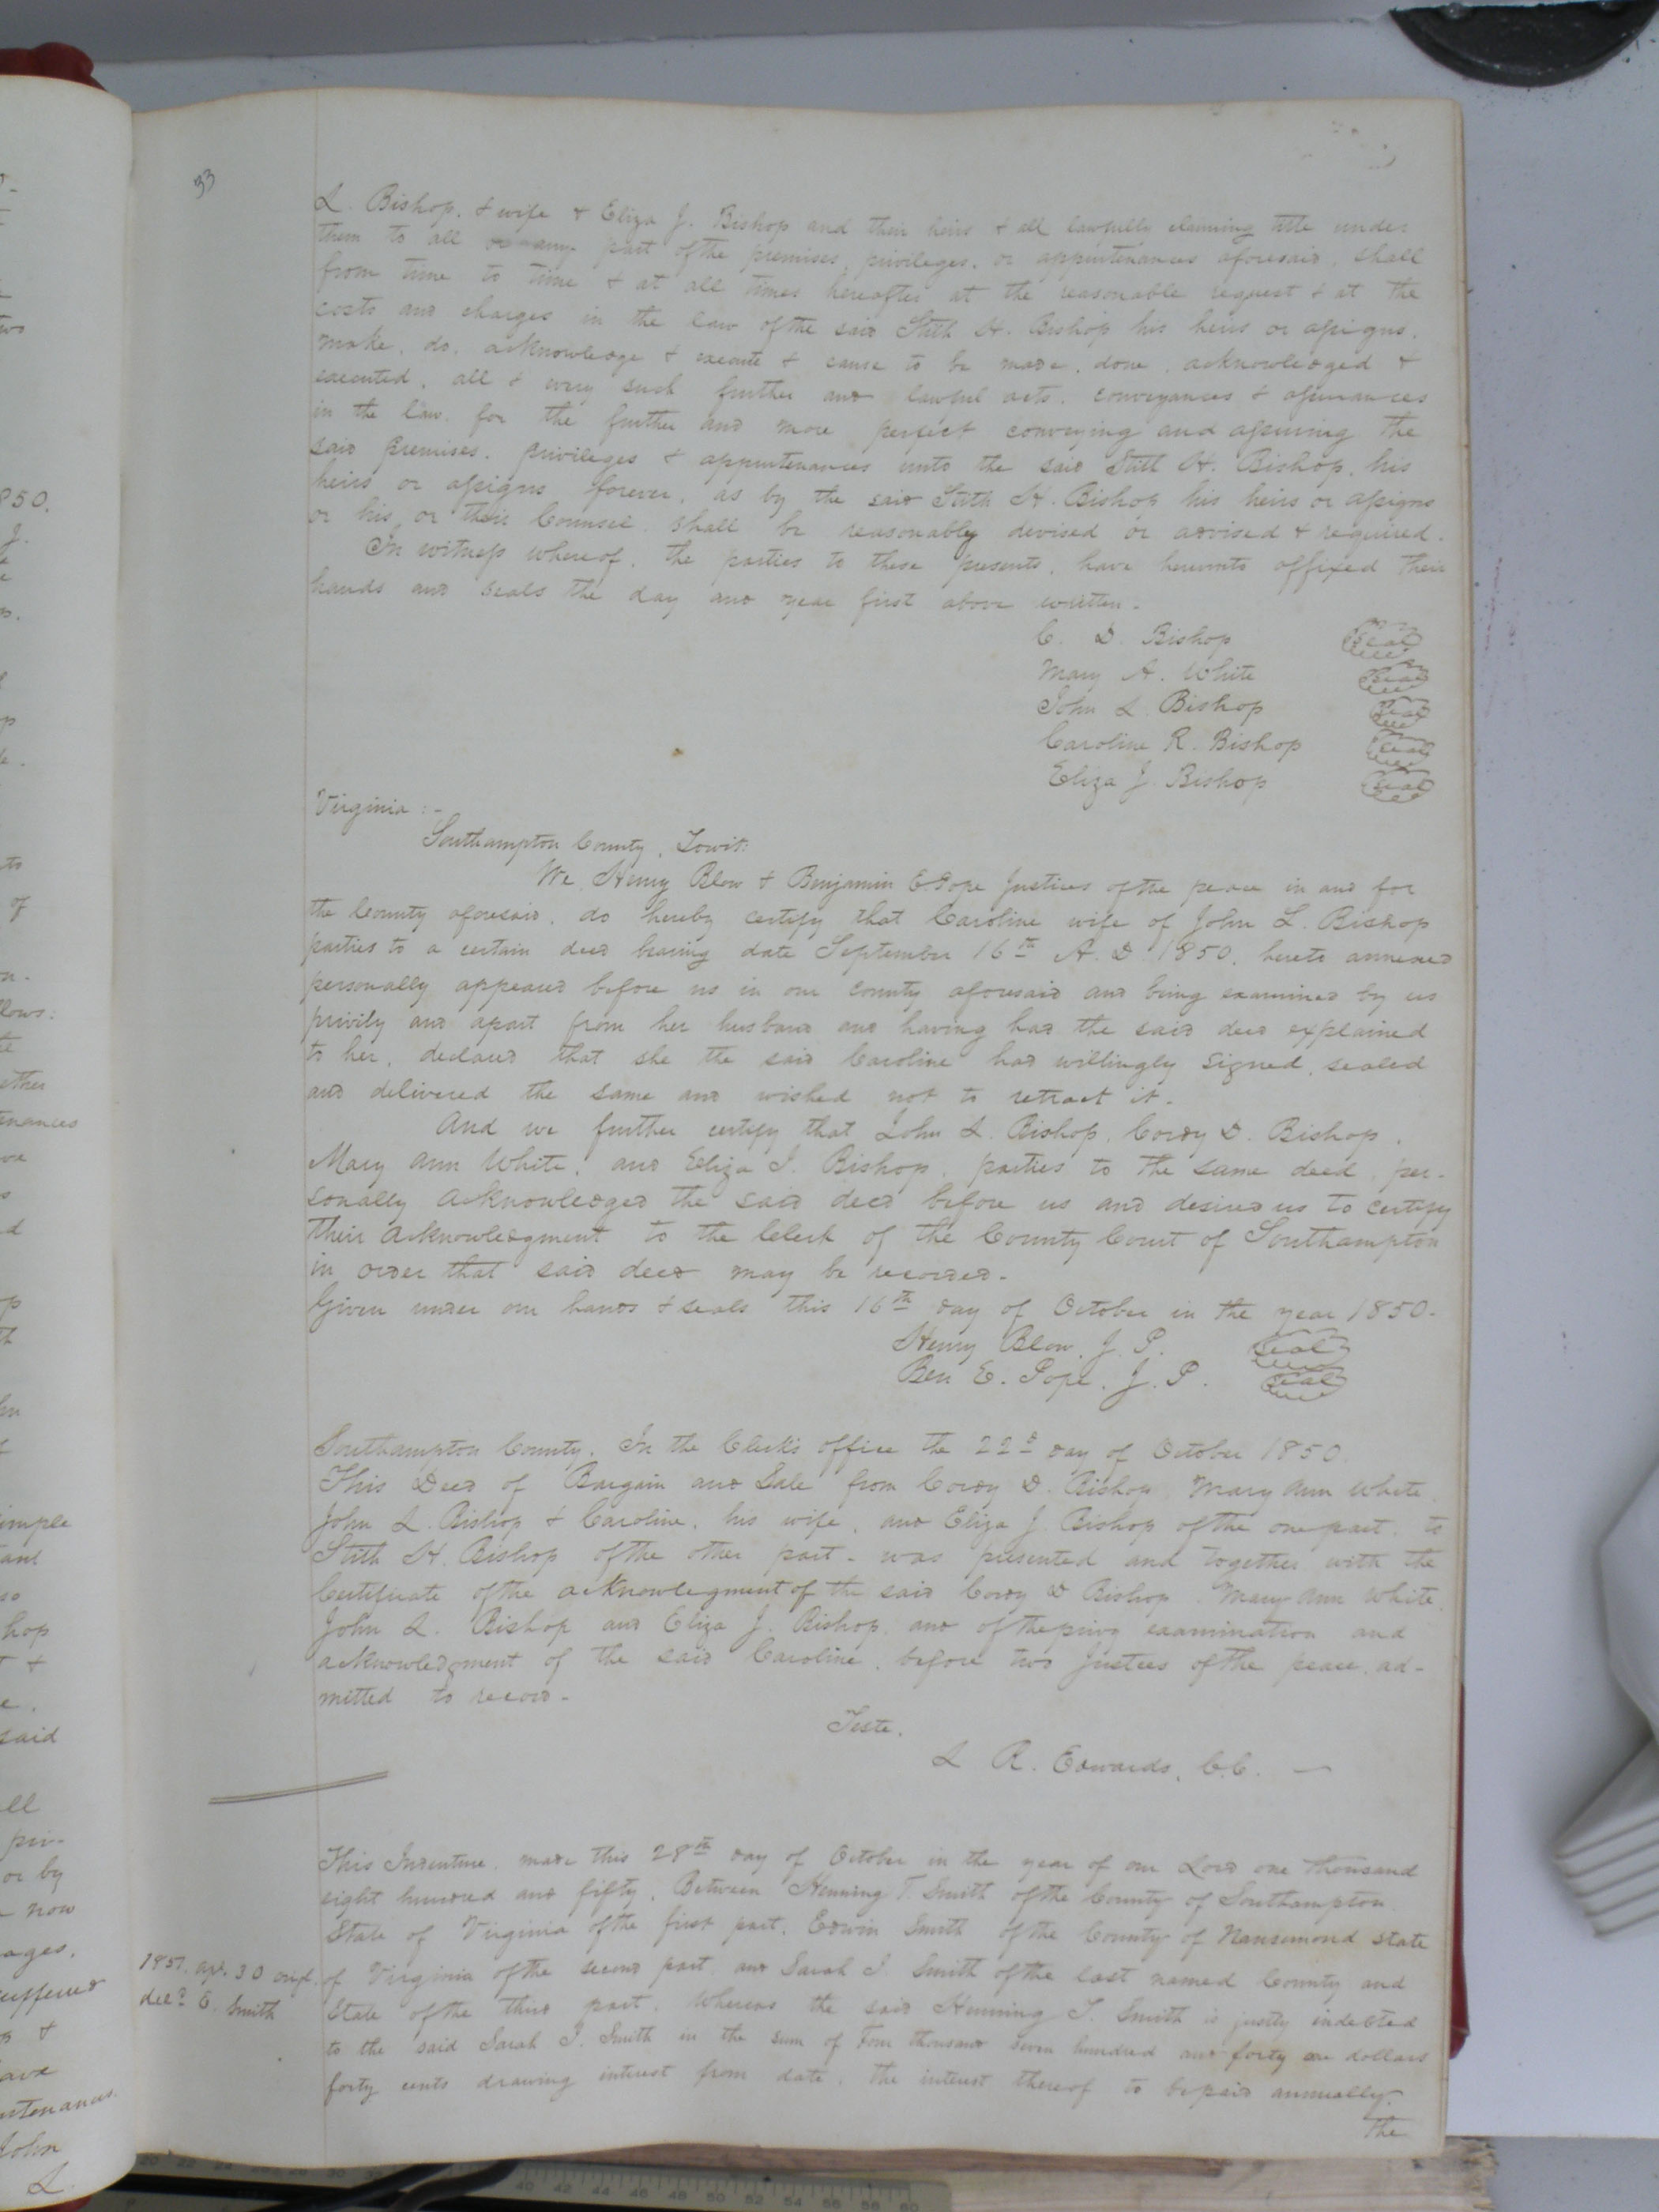 33
L. Bishop, & wife & Eliza J. Bishop and their heirs & all lawfully claiming title under
them to all or any part of the premises, privileges, or appurtenances aforesaid, shall
from time to time & at all times hereafter at the reasonable request & at the
costs and charges in the law of the said Stith H. Bishop his heirs or assigns,
make, do, acknowledge & execute & cause to be made, done, acknowledged &
executed, all & every such further and lawful acts, conveyances & assurances
in the law, for the further and more perfect conveying and assuring the
said premises, privileges & appurtenances unto the said Stith H. Bishop, his
heirs or assigns forever, as by the said Stith H. Bishop his heirs or assigns
or his or their Counsel shall be reasonably devised or advised & required.
In witness whereof, the parties to these presents, have hereunto affixed their
hands and seals the day and year first above written.
C. D. Bishop Seal
Mary A. White Seal
John L. Bishop Seal
Caroline R. Bishop Seal
Eliza J. Bishop Seal
Virginia :-
Southampton County, Towit:
We, Henry Blow & Benjamin E. Pope Justices of the peace in and for
the County aforesaid, do hereby certify that Caroline wife of John L. Bishop
parties to a certain deed bearing date September 16th A. D. 1850, hereto annexed
personally appeared before us in our County aforesaid and being examined by us
privily and apart from her husband and having had the said deed explained
to her, declared that she the said Caroline had willingly signed, sealed
and delivered the same and wished not to retract it.
And we further certify that John L. Bishop, Cordy D. Bishop,
Mary Ann White, and Eliza J. Bishop, parties to the same deed, per-
sonally acknowledged the said deed before us and desired us to certify
their acknowledgment to the Clerk of the County Court of Southampton
in order that said deed may be recorded.
Given under our hands & seals this 16th day of October in the year 1850.
Henry Blow, J. P. Seal
Ben E. Pope, J. P. Seal
Southampton County, In the Clerk's office the 22d day of October 1850.
This Deed of Bargain and Sale from Cordy D. Bishop, Mary Ann White,
John L. Bishop & Caroline, his wife, and Eliza J. Bishop of the one part, to
Stith H. Bishop of the other part - was presented and together with the
Certificate of the acknowlegment of the said Cordy D Bishop, Mary Ann White,
John L. Bishop and Eliza J. Bishop, and of the privy examination and
acknowledgment of the said Caroline, before two Justices of the peace, ad-
mitted to record.
Teste,
L R. Edwards, C.C.
This Indenture, made this 28th day of October in the year of our Lord one thousand
eight hundred and fifty, Between Henning T. Smith of the County of Southampton
State of Virginia of the first part, Edwin Smith of the County of Nansemond state
of Virginia of the second part, and Sarah J. Smith of the last named County and
State of the third part. Whereas the said Henning T. Smith is justly indebted
to the said Sarah J. Smith in the sum of Four thousand seven hundred and forty one dollars
forty cents drawing interest from date, the interest thereof to be paid annually.
The
1857. apl. 30
E. Smith